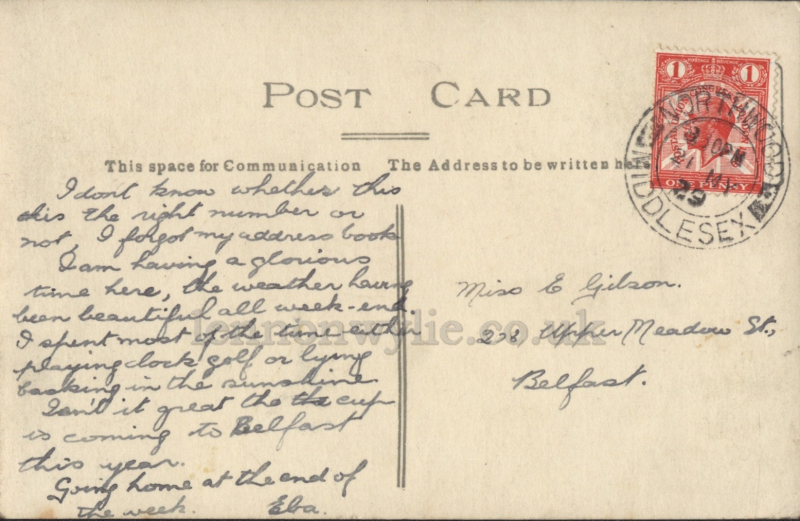 POST CARD
This space for Communication The Address to be written here
I dont know whether this
is the right number or
not, I forgot my address book
I am having a glorious
time here, the weather having
been beautiful all week-end.
I spent most of the time either
playing clock golf or lying
basking in the sunshine
Isn't it great the the cup
is coming to Belfast
this year.
Going home at the end of
the week. Eba.
Miss E Gilson.
278 Upper Meadow St.,
Belfast.
1 1
ONE PENNY
NORTHWOOD
21 MY
29
MIDDLESEX
lennonwylie.co.uk